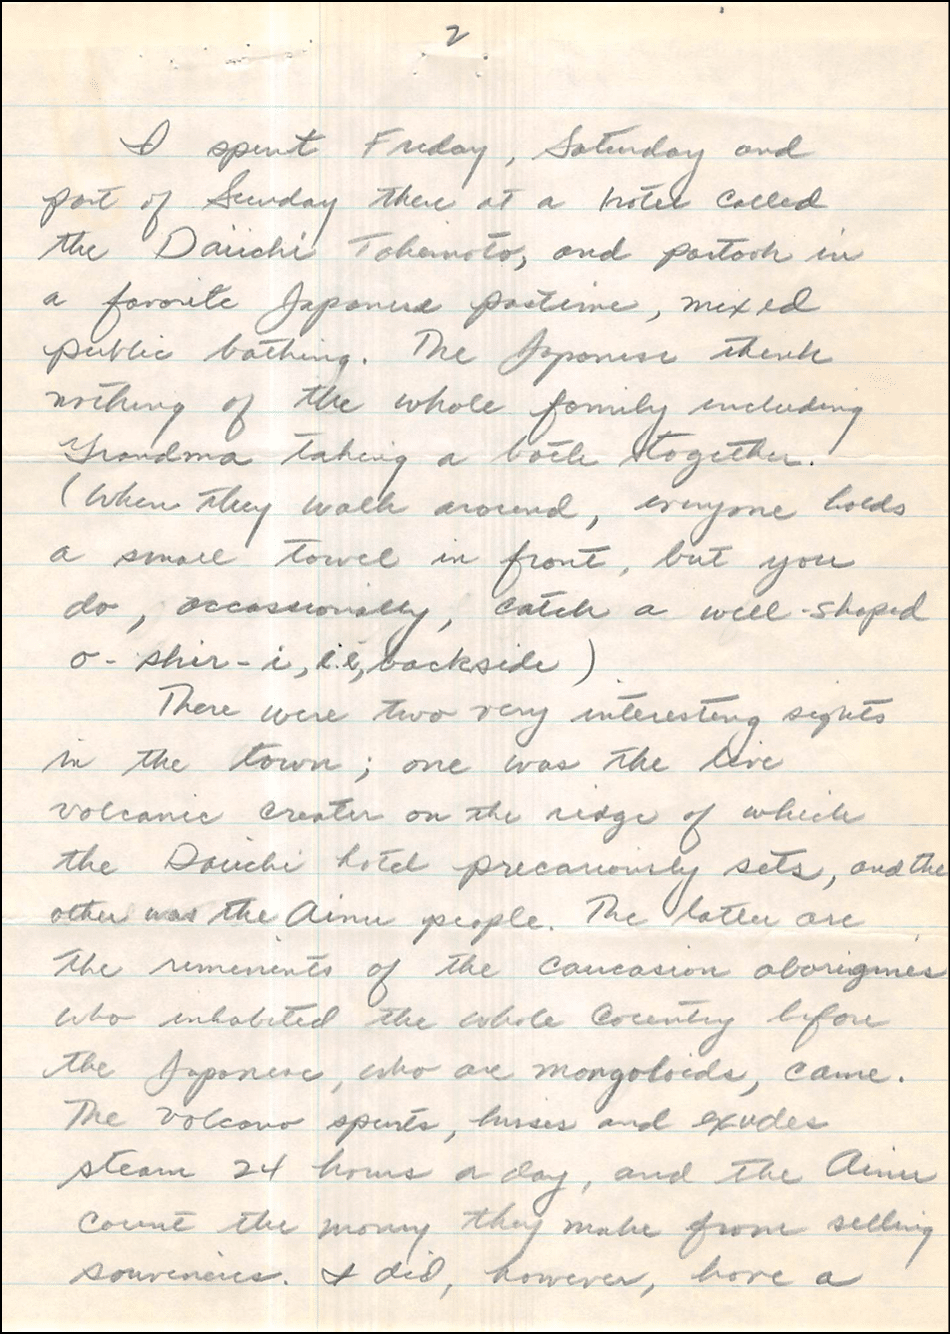 2
I spent Friday, Saturday and
part of Sunday there at a hotel called
the Daiichi Takimoto, and partook in
a favorite Japanese pastime, mixed
public bathing. The Japanese think
nothing of the whole family including
Grandma taking a bath together.
(When they walk around, everyone holds
a small towel in front, but you
do, occassionally, catch a well-shaped
o-shir-i, i.e., backside)
There were two very interesting sights
in the town; one was the live
volcanic crater on the ridge of which
the Daiichi hotel precariously sets, and the
other was the Ainu people. The latter are
the riminents of the caucasion aborigines
who inhabited the whole country before
the Japanese, who are mongoloids, came.
The volcano spurts, hisses and exudes
steam 24 hours a day, and the Ainu
count the money they make from selling
souvenirs. I did, however, have a